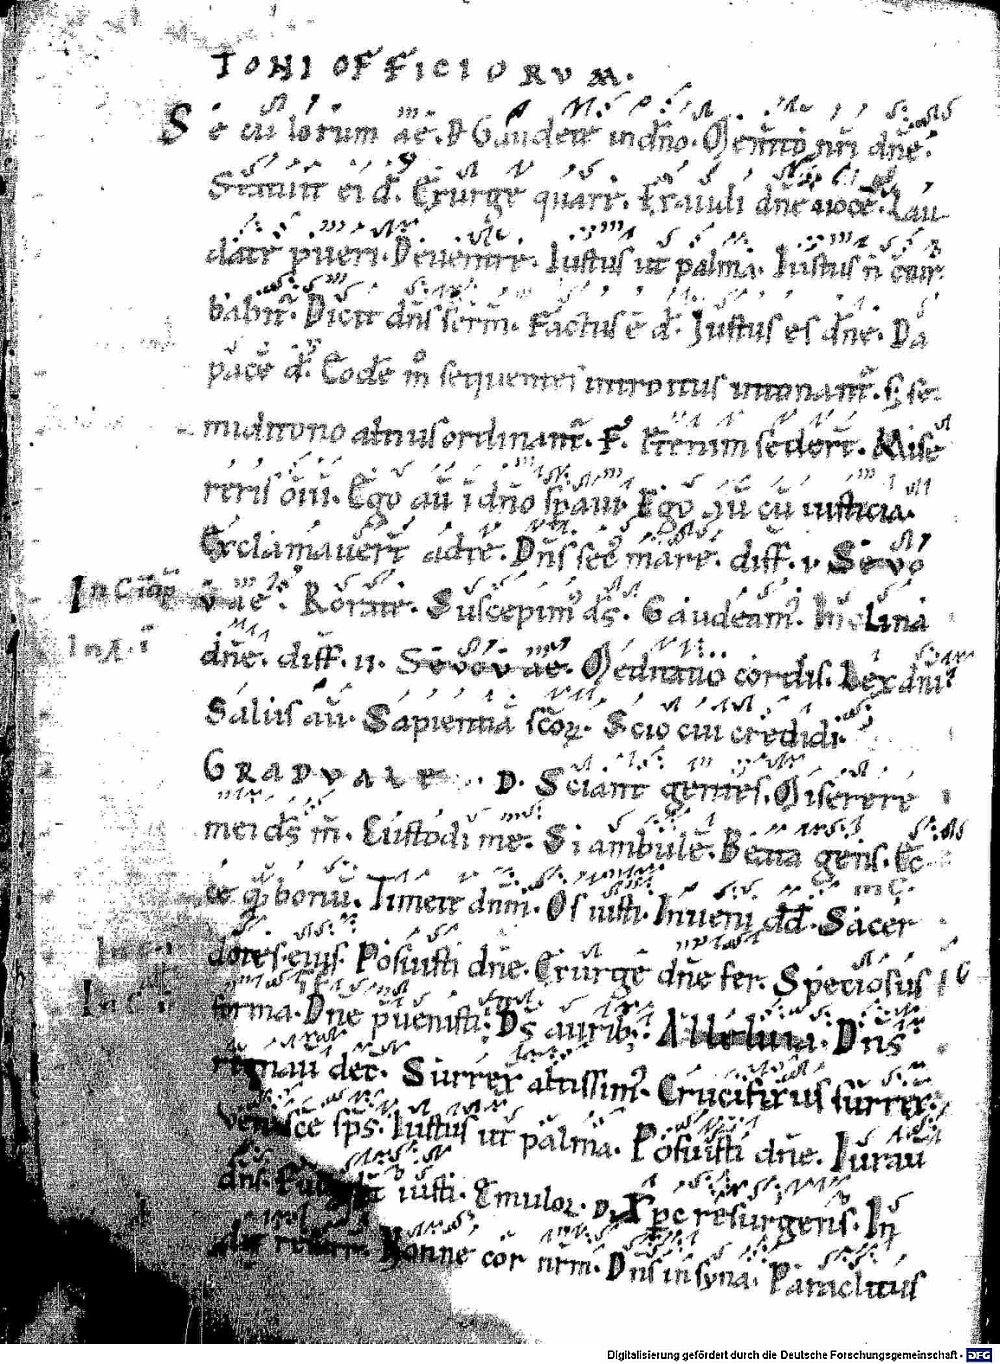 TONI OFFICIORUM.
Seculorum am̄. D Gaudete in dn̄o. Mem̄to nr̄i dn̄e.
Statuit ei d̄s. Exurge quare. Exaudi dn̄e uocē. Lau
date pueri. Deuenire. Iustus ut palma. Iustus n̄ cōtur
babit̄. Dicit dn̄s serm̄. Factus ē d̄s. Iustus es dn̄e. Da
pacē d̄s. Eodē m̊ sequentes introitus intonant̄. s; se
miditono altius ordinant̄. F. Etenim seder̄t. Mise
reris om̄iū. Ego aū ī dn̄o spaui. Ego aū cū iusticia.
Exclamauer̄t ad te. Dn̄s sec̄ mare. diff. ı. Seuo
uae. Rorate. Suscepim᷒ d̄s. Gaudeam᷒. Inclina
dn̄e. diff. ıı. Seuouae. Meditatio cordis. Lex dn̄i.
Salus aū. Sapientiā sc̄oꝝ. Scio cui credidi.
GRADUALE. D. Sciant gentes. Miserere
mei d̄s m̄. Custodi me. Si ambulē. Beata gens. Ec
ce q̄ bonū. Timete dnm̄. Os iusti. Inueni dd̄. Sacer
dotes eius. Posuisti dn̄e. Exurge dn̄e fer. Speciosus
forma. Dn̄e p̄uenisti. D̄s aurib᷒. Alleluia. Dn̄s
regnau dec̄. Surrex altissim᷒. Crucifixus surrex.
Veni sc̄e sp̄s. Iustus ut palma. Posuisti dn̄e. Iurau
dn̄s. iusti. Emuloꝝ. D. Xp̄c resurgens. In
Nonne cor nr̄m. Dn̄s in syna. Paraclitus
Digitalisierung gefördert durch die Deutsche Forschungsgemeinschaft - DFG